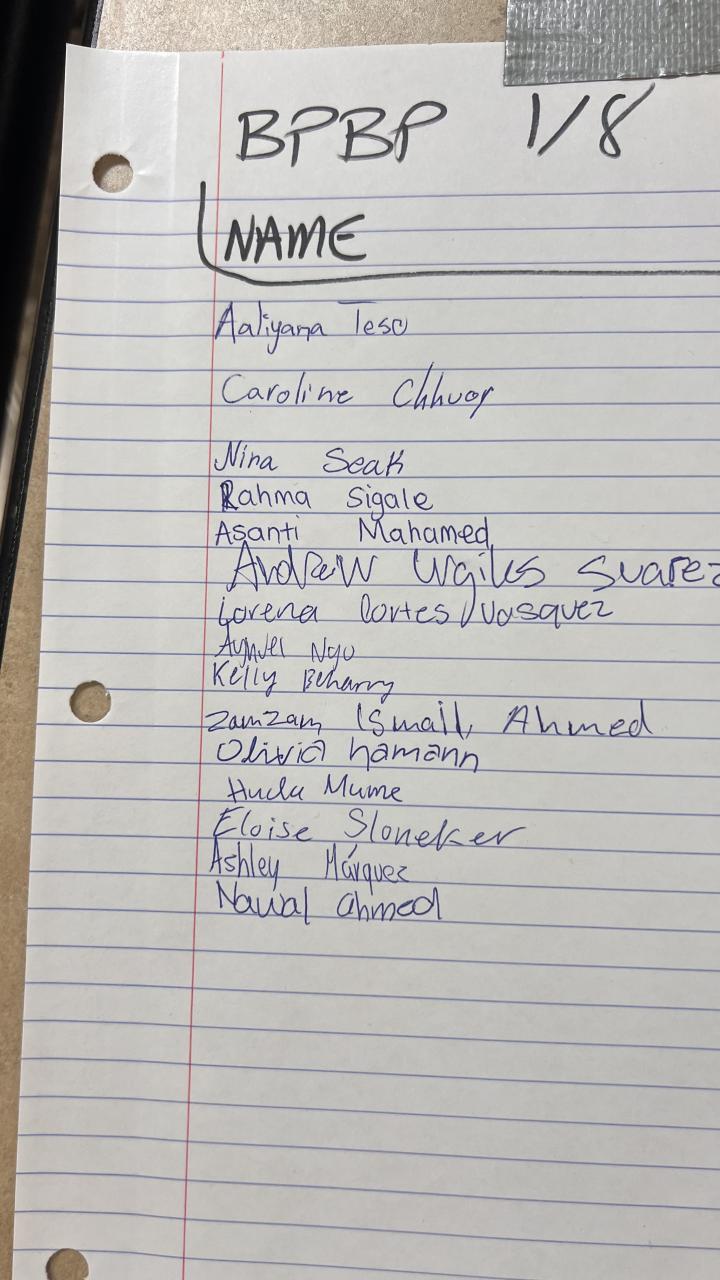 BPBP 1/8
NAME
Aaliyana Teso
Caroline Chhuoy
Nina Seak
Rahma Sigale
Asanti Mahamed
Andrew Ugiles Suarez
Lorena Cortes Vasquez
Ngo
Kelly Beharry
Zamzam Ismail Ahmed
Olivia hamann
Huda Mume
Eloise Sloneker
Ashley Márquez
Nawal ahmed